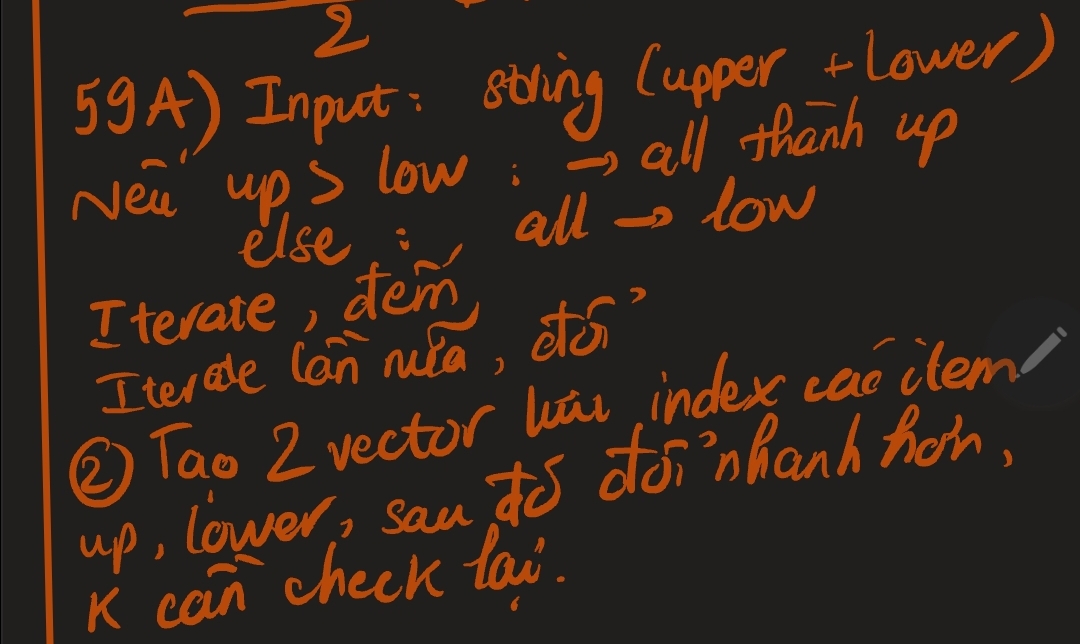 2
59A) Input: string (upper + lower)
Nếu up > low : → all thành up
else : all → low
Iterate, đếm
Iterate lần nữa, đổi
② Tạo 2 vector lưu index các item
up, lower, sau đó đổi nhanh hơn,
K cần check lại.